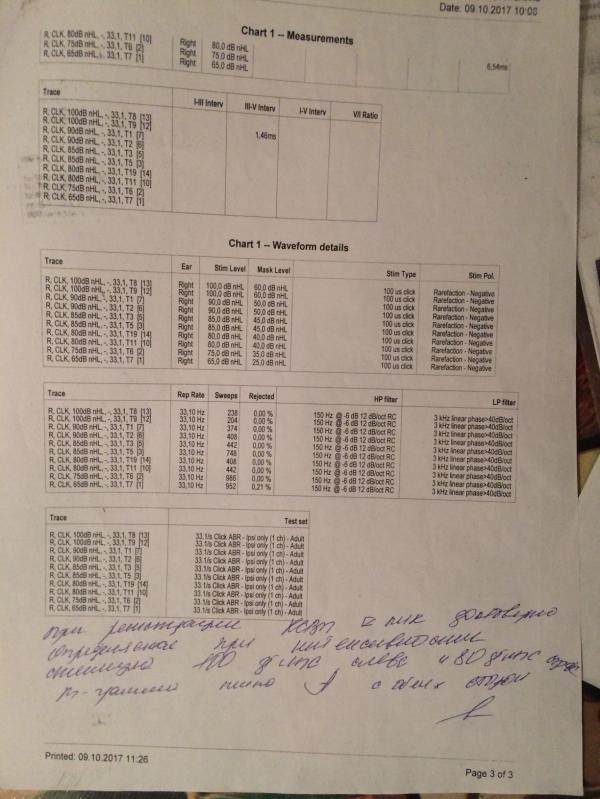 Date: 09.10.2017 10:08
Chart 1 -- Measurements
R, CLK, 80dB nHL, -, 33,1, T11 [10] Right 80,0 dB nHL
R, CLK, 75dB nHL, -, 33,1, T6 [2] Right 75,0 dB nHL
R, CLK, 65dB nHL, -, 33,1, T7 [1] Right 65,0 dB nHL 6,54ms
Trace I-III Interv III-V Interv I-V Interv V/I Ratio
R, CLK, 100dB nHL, -, 33,1, T8 [13]
R, CLK, 100dB nHL, -, 33,1, T9 [12]
R, CLK, 90dB nHL, -, 33,1, T1 [7] 1,46ms
R, CLK, 90dB nHL, -, 33,1, T2 [6]
R, CLK, 85dB nHL, -, 33,1, T3 [5]
R, CLK, 85dB nHL, -, 33,1, T5 [3]
R, CLK, 80dB nHL, -, 33,1, T19 [14]
R, CLK, 80dB nHL, -, 33,1, T11 [10]
R, CLK, 75dB nHL, -, 33,1, T6 [2]
R, CLK, 65dB nHL, -, 33,1, T7 [1]
Chart 1 -- Waveform details
Trace Ear Stim Level Mask Level Stim Type Stim Pol.
R, CLK, 100dB nHL, -, 33,1, T8 [13] Right 100,0 dB nHL 60,0 dB nHL 100 us click Rarefaction - Negative
R, CLK, 100dB nHL, -, 33,1, T9 [12] Right 100,0 dB nHL 60,0 dB nHL 100 us click Rarefaction - Negative
R, CLK, 90dB nHL, -, 33,1, T1 [7] Right 90,0 dB nHL 50,0 dB nHL 100 us click Rarefaction - Negative
R, CLK, 90dB nHL, -, 33,1, T2 [6] Right 90,0 dB nHL 50,0 dB nHL 100 us click Rarefaction - Negative
R, CLK, 85dB nHL, -, 33,1, T3 [5] Right 85,0 dB nHL 45,0 dB nHL 100 us click Rarefaction - Negative
R, CLK, 85dB nHL, -, 33,1, T5 [3] Right 85,0 dB nHL 45,0 dB nHL 100 us click Rarefaction - Negative
R, CLK, 80dB nHL, -, 33,1, T19 [14] Right 80,0 dB nHL 40,0 dB nHL 100 us click Rarefaction - Negative
R, CLK, 80dB nHL, -, 33,1, T11 [10] Right 80,0 dB nHL 40,0 dB nHL 100 us click Rarefaction - Negative
R, CLK, 75dB nHL, -, 33,1, T6 [2] Right 75,0 dB nHL 35,0 dB nHL 100 us click Rarefaction - Negative
R, CLK, 65dB nHL, -, 33,1, T7 [1] Right 65,0 dB nHL 25,0 dB nHL 100 us click Rarefaction - Negative
Trace Rep Rate Sweeps Rejected HP filter LP filter
R, CLK, 100dB nHL, -, 33,1, T8 [13] 33,10 Hz 238 0,00 % 150 Hz @ -6 dB 12 dB/oct RC 3 kHz linear phase>40dB/oct
R, CLK, 100dB nHL, -, 33,1, T9 [12] 33,10 Hz 204 0,00 % 150 Hz @ -6 dB 12 dB/oct RC 3 kHz linear phase>40dB/oct
R, CLK, 90dB nHL, -, 33,1, T1 [7] 33,10 Hz 374 0,00 % 150 Hz @ -6 dB 12 dB/oct RC 3 kHz linear phase>40dB/oct
R, CLK, 90dB nHL, -, 33,1, T2 [6] 33,10 Hz 408 0,00 % 150 Hz @ -6 dB 12 dB/oct RC 3 kHz linear phase>40dB/oct
R, CLK, 85dB nHL, -, 33,1, T3 [5] 33,10 Hz 442 0,00 % 150 Hz @ -6 dB 12 dB/oct RC 3 kHz linear phase>40dB/oct
R, CLK, 85dB nHL, -, 33,1, T5 [3] 33,10 Hz 748 0,00 % 150 Hz @ -6 dB 12 dB/oct RC 3 kHz linear phase>40dB/oct
R, CLK, 80dB nHL, -, 33,1, T19 [14] 33,10 Hz 408 0,00 % 150 Hz @ -6 dB 12 dB/oct RC 3 kHz linear phase>40dB/oct
R, CLK, 80dB nHL, -, 33,1, T11 [10] 33,10 Hz 442 0,00 % 150 Hz @ -6 dB 12 dB/oct RC 3 kHz linear phase>40dB/oct
R, CLK, 75dB nHL, -, 33,1, T6 [2] 33,10 Hz 986 0,00 % 150 Hz @ -6 dB 12 dB/oct RC 3 kHz linear phase>40dB/oct
R, CLK, 65dB nHL, -, 33,1, T7 [1] 33,10 Hz 952 0,21 % 150 Hz @ -6 dB 12 dB/oct RC 3 kHz linear phase>40dB/oct
Trace Test set
R, CLK, 100dB nHL, -, 33,1, T8 [13] 33.1/s Click ABR - Ipsi only (1 ch) - Adult
R, CLK, 100dB nHL, -, 33,1, T9 [12] 33.1/s Click ABR - Ipsi only (1 ch) - Adult
R, CLK, 90dB nHL, -, 33,1, T1 [7] 33.1/s Click ABR - Ipsi only (1 ch) - Adult
R, CLK, 90dB nHL, -, 33,1, T2 [6] 33.1/s Click ABR - Ipsi only (1 ch) - Adult
R, CLK, 85dB nHL, -, 33,1, T3 [5] 33.1/s Click ABR - Ipsi only (1 ch) - Adult
R, CLK, 85dB nHL, -, 33,1, T5 [3] 33.1/s Click ABR - Ipsi only (1 ch) - Adult
R, CLK, 80dB nHL, -, 33,1, T19 [14] 33.1/s Click ABR - Ipsi only (1 ch) - Adult
R, CLK, 80dB nHL, -, 33,1, T11 [10] 33.1/s Click ABR - Ipsi only (1 ch) - Adult
R, CLK, 75dB nHL, -, 33,1, T6 [2] 33.1/s Click ABR - Ipsi only (1 ch) - Adult
R, CLK, 65dB nHL, -, 33,1, T7 [1] 33.1/s Click ABR - Ipsi only (1 ch) - Adult
При регистрации КСВП V пик достоверно
определяется при интенсивности
стимула 100 дБ слева и 80 дБ
тимпанограмма типа A с обеих сторон
Printed: 09.10.2017 11:26
Page 3 of 3